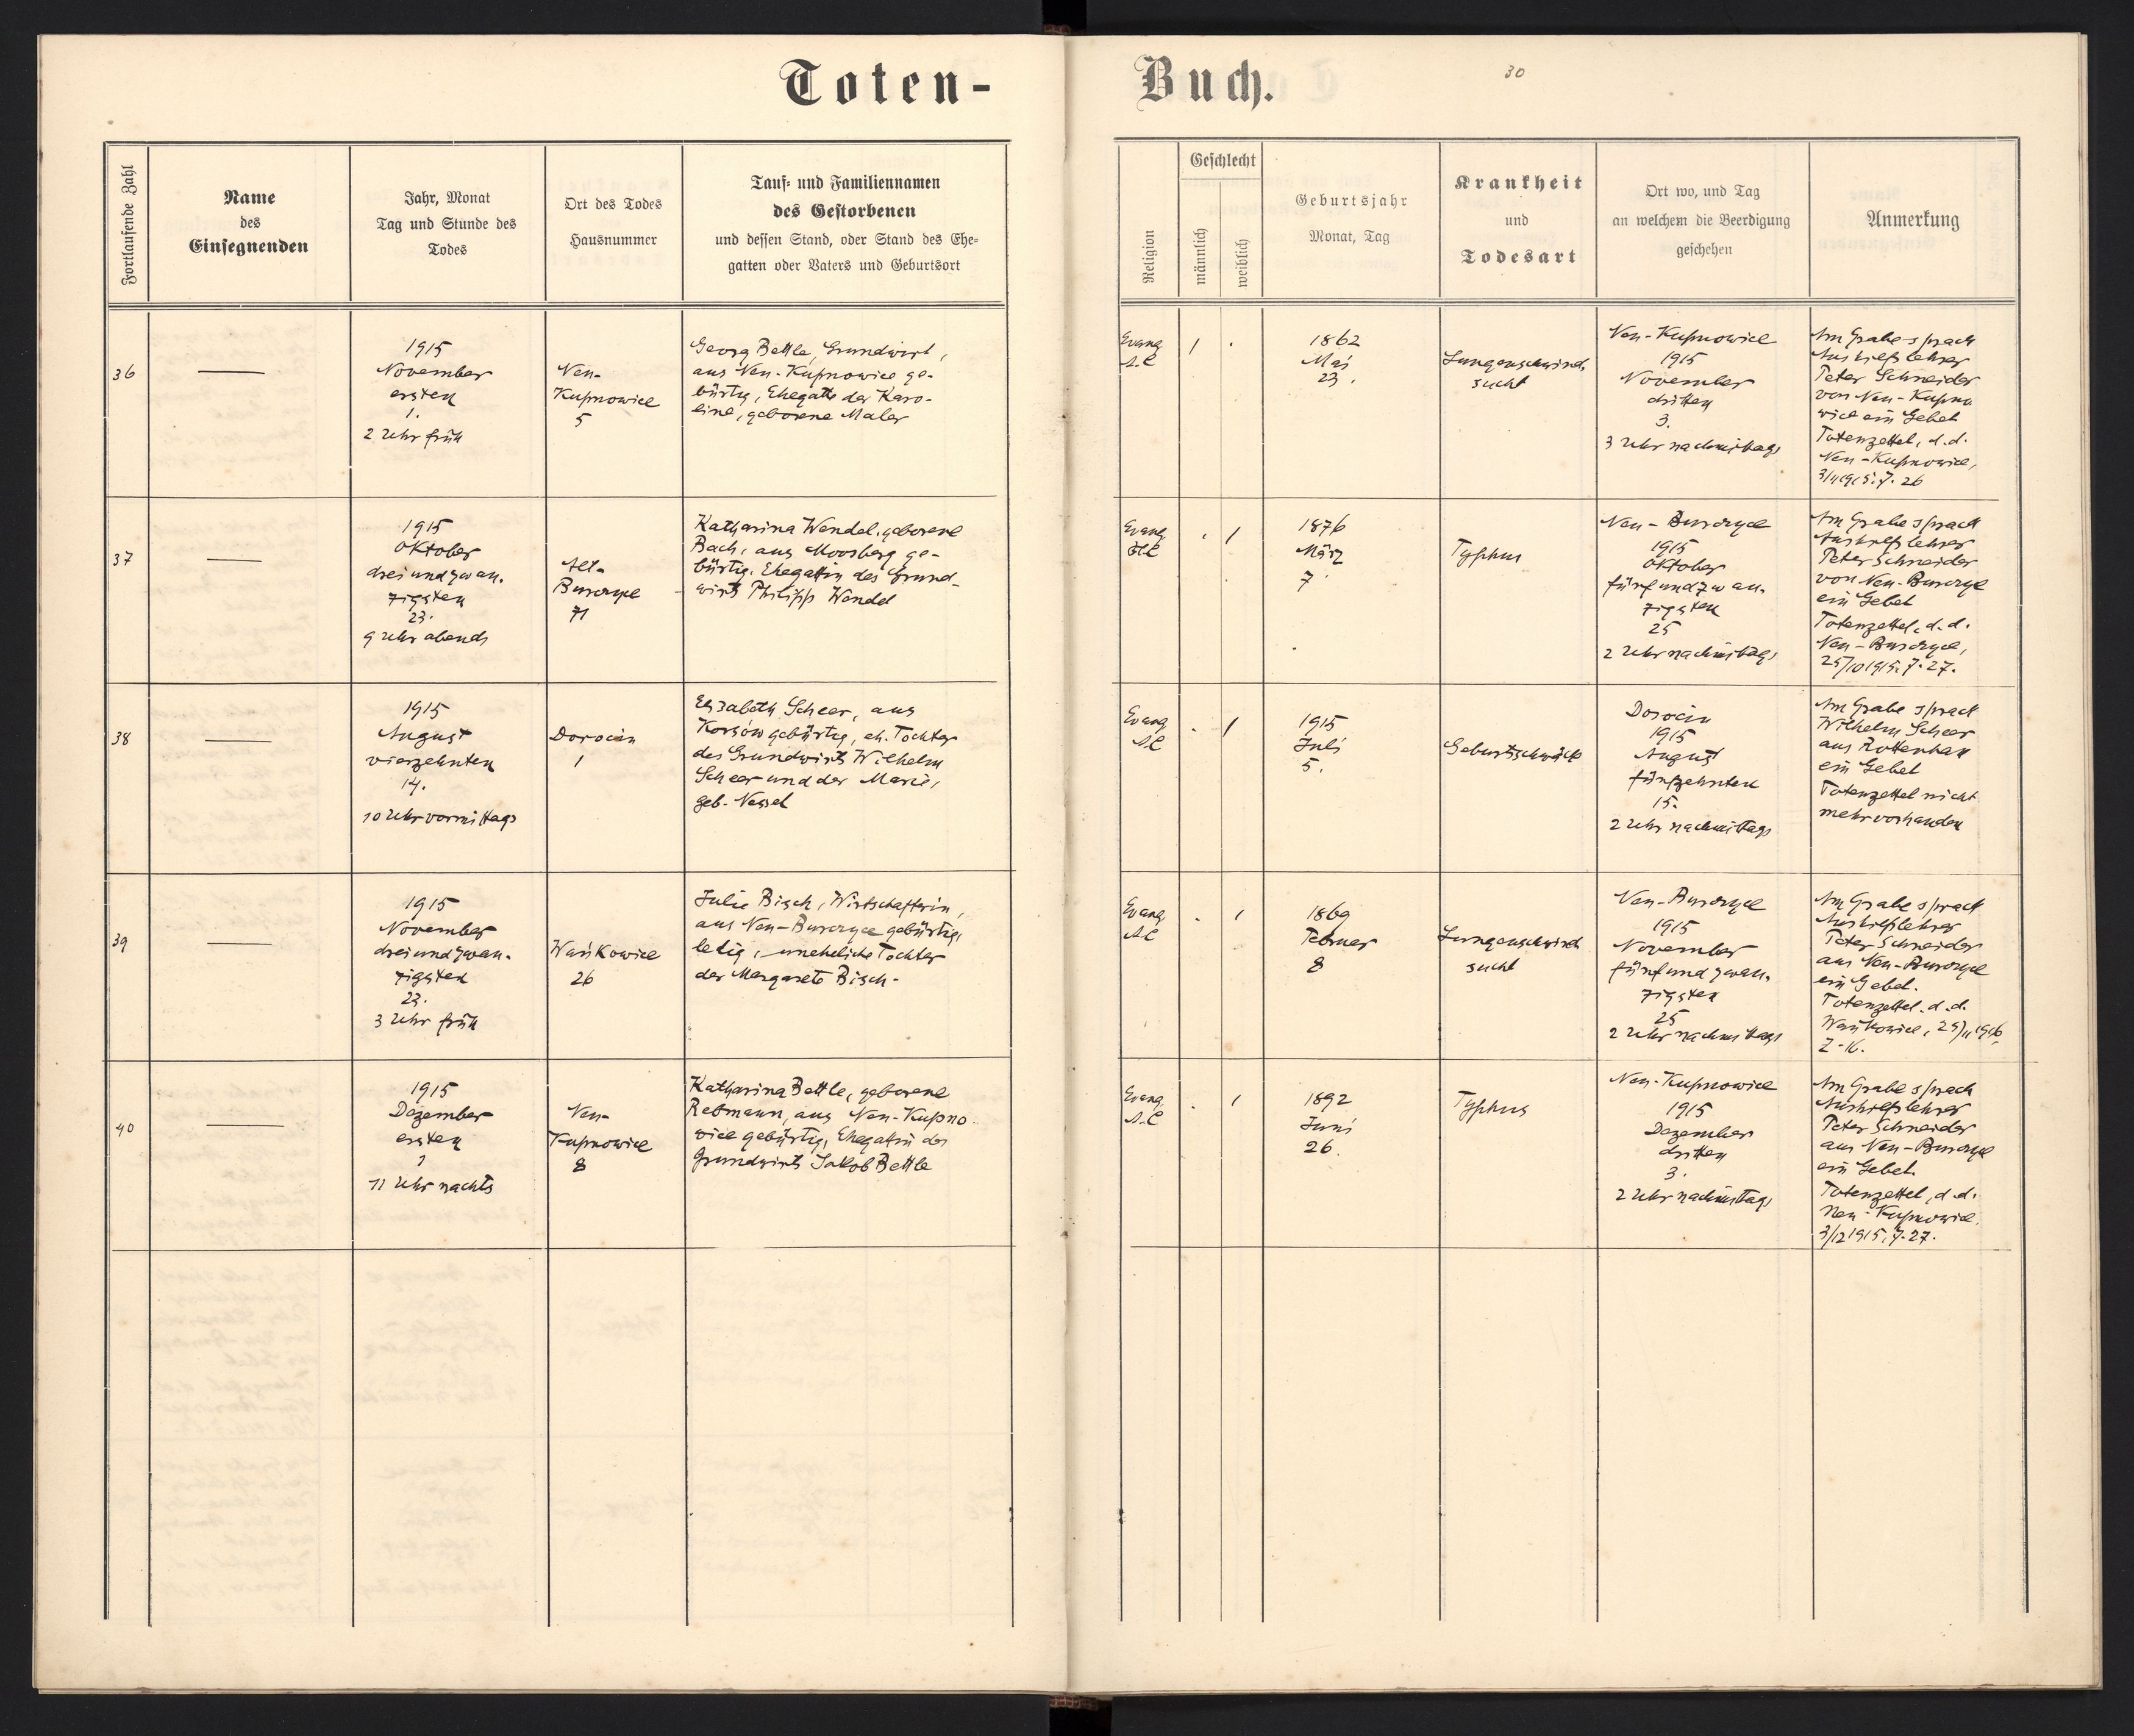 Toten-
Fortlaufende Zahl
Name
des
Einsegnenden
Jahr, Monat
Tag und Stunde des
Todes
Ort des Todes
Hausnummer
Tauf- und Familiennamen
des Gestorbenen
und dessen Stand, oder Stand des Ehe-
gatten oder Vaters und Geburtsort
36
1915
November
ersten
1.
2 Uhr früh
Neu-
Kupnowice
5
Georg Bettle, Grundwirt,
aus Neu-Kupnowice ge-
bürtig, Ehegatte der Karo-
line, geborene Maler
37
1915
Oktober
dreiundzwan-
zigsten
23.
9 Uhr abends
Alt-
Burczyce
71
Katharina Wendel, geborene
Bach, aus Moosberg ge-
bürtig, Ehegattin des Grund-
wirts Philipp Wendel
38
1915
August
vierzehnten
14.
10 Uhr vormittags
Dorocin
1
Elisabeth Scheer, aus
gebürtig, eh. Tochter
des Grundwirts Wilhelm
Scheer und der Marie,
geb. Nessel
39
1915
November
dreiundzwan-
zigsten
23.
3 Uhr früh
Wańkowice
26
Julie Bisch, Wirtschafterin,
aus Neu-Burczyce gebürtig,
ledig, uneheliche Tochter
der Margarete Bisch-
40
1915
Dezember
ersten
1
11 Uhr nachts
Neu-
Kupnowice
8
Katharina Bettle, geborene
Rebmann, aus Neu-Kupno-
wice gebürtig, Ehegattin des
Grundwirts Jakob Bettle
Buch.
30
Religion
Geschlecht
männlich
weiblich
Geburtsjahr
Monat, Tag
Krankheit
und
Todesart
Ort wo, und Tag
an welchem die Beerdigung
geschehen
Anmerkung
Evang
A.C
1
1862
Mai
23.
Lungenschwind-
sucht
Neu-Kupnowice
1915
November
dritten
3.
3 Uhr nachmittags
Am Grabe sprach
Aushilfslehrer
Peter Schneider
von Neu-Kupno
wice ein Gebet
Totenzettel, d.d.
Neu-Kupnowice,
3/11 1915. Z. 26
Evang
1
1876
März
7.
Typhus
Neu-Burczyce
1915
Oktober
fünfundzwan-
zigsten
25
2 Uhr nachmittags
Am Grabe sprach
Aushilfslehrer
Peter Schneider
von Neu-Burczyce
ein Gebet
Totenzettel, d.d.
Neu-Burczyce,
25/10 1915. Z. 27.
Evang
A.C
1
1915
Juli
5.
Geburtsschwäche
Dorocin
1915
August
fünfzehnten
15.
2 Uhr nachmittags
Am Grabe sprach
Wilhelm Scheer
aus Rottenhan
ein Gebet
Totenzettel nicht
mehr vorhanden
Evang
A.C
1
1869
Februar
8
Lungenschwind-
sucht
Neu-Burczyce
1915
November
fünfundzwan-
zigsten
25
2 Uhr nachmittags
Am Grabe sprach
Aushilfslehrer
Peter Schneider
aus Neu-Burczyce
ein Gebet.
Totenzettel. d.d.
Wańkowice,
Evang
A.C
1
1892
Juni
26.
Typhus
Neu-Kupnowice
1915
Dezember
dritten
3.
2 Uhr nachmittags
Am Grabe sprach
Aushilfslehrer
Peter Schneider
aus Neu-Burczyce
ein Gebet.
Totenzettel, d.d.
Neu-Kupnowice,
3/12 1915, Z. 27.